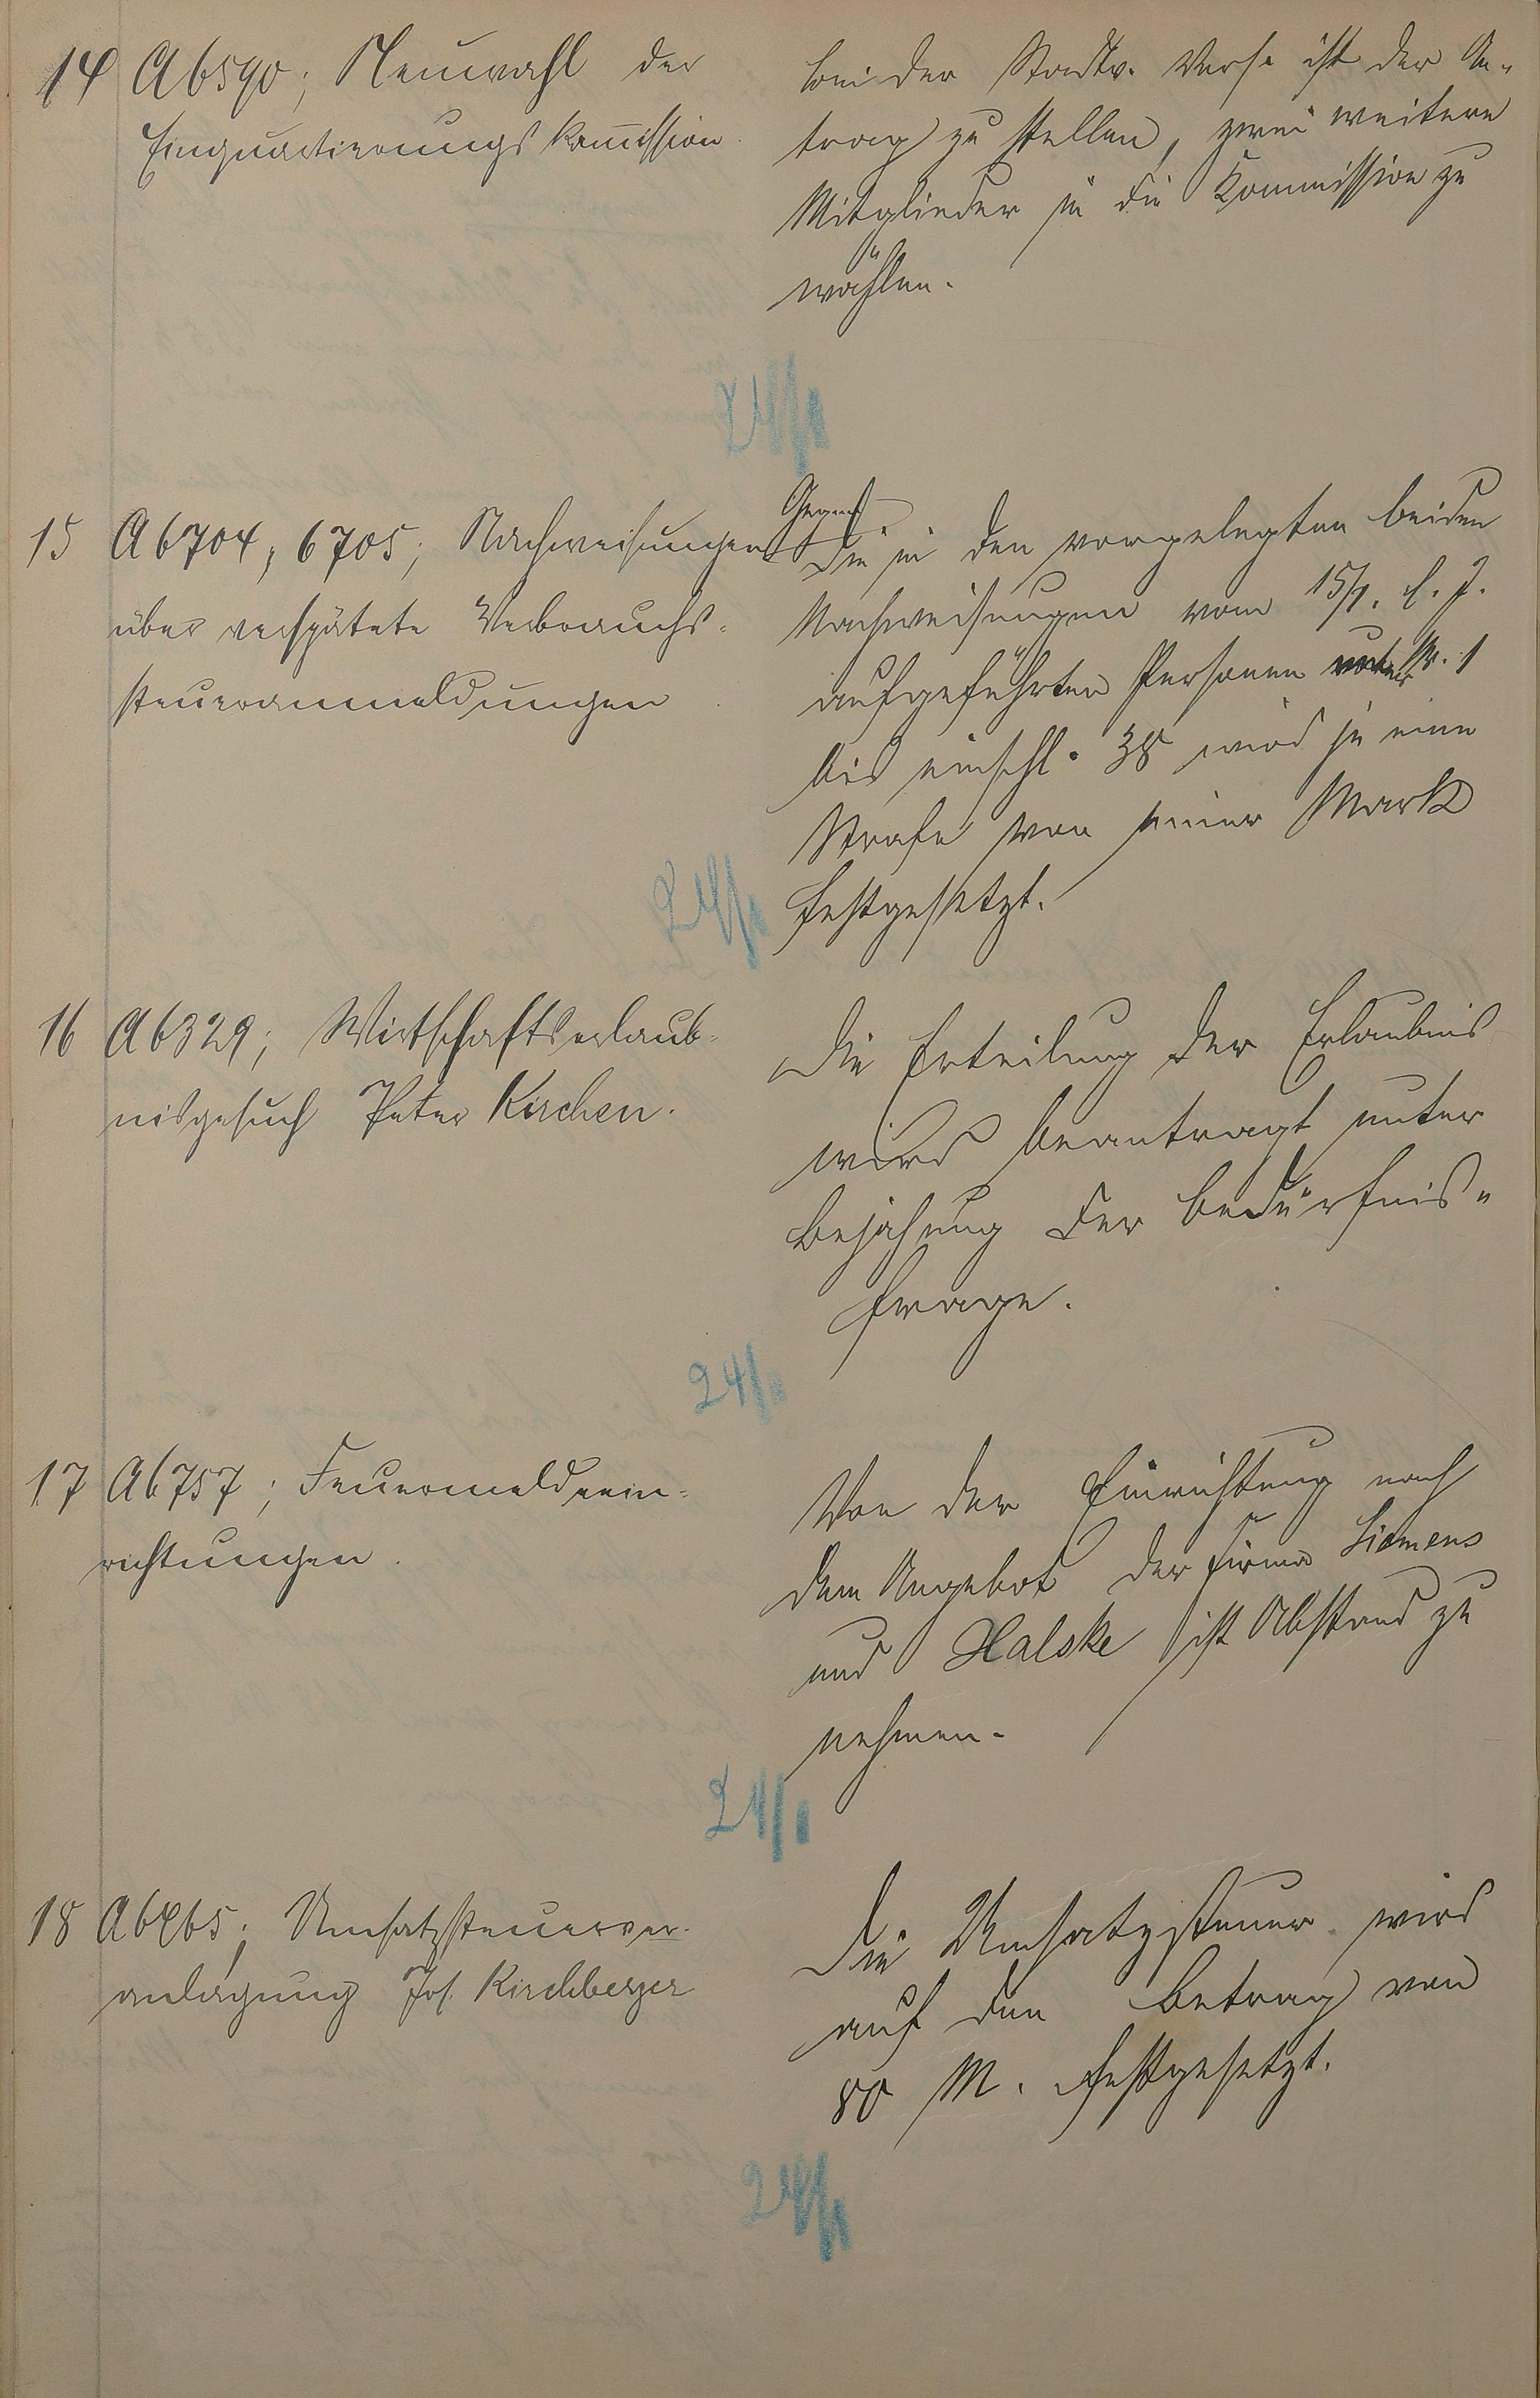 14 A 6590; Neuwahl der
Einquartierungskommission.
bei der Stadtv. Vers. ist der An-
trag zu stellen, zwei weitere
Mitglieder in die Kommission zu
wählen.
24/1
15 A 6704, 6705; Nachweisungen
über verspätete Verbrauchs-
steueranmeldungen
Gegen
die in den vorgelegten beiden
Nachweisungen vom 15/1. l. J.
aufgeführten Personen unter Nr. 1
bis einschl. 38 wird je eine
Strafe von einer Mark
festgesetzt.
24/1
16 A 6329; Wirtschaftserlaub-
nisgesuch Peter Kirchen.
Die Erteilung der Erlaubnis
wird beantragt unter
Bejahung der Bedürfnis-
frage.
24/1
17 A 6757; Feuermeldeein-
richtungen.
Von der Einrichtung nach
dem Angebot der Firma Siemens
und Halske ist Abstand zu
nehmen.
24/1
18 A 6465; Umsatzsteuerver-
anlagung Jos. Kirchberger
Die Umsatzsteuer wird
auf den Betrag von
80 M. festgesetzt.
24/1